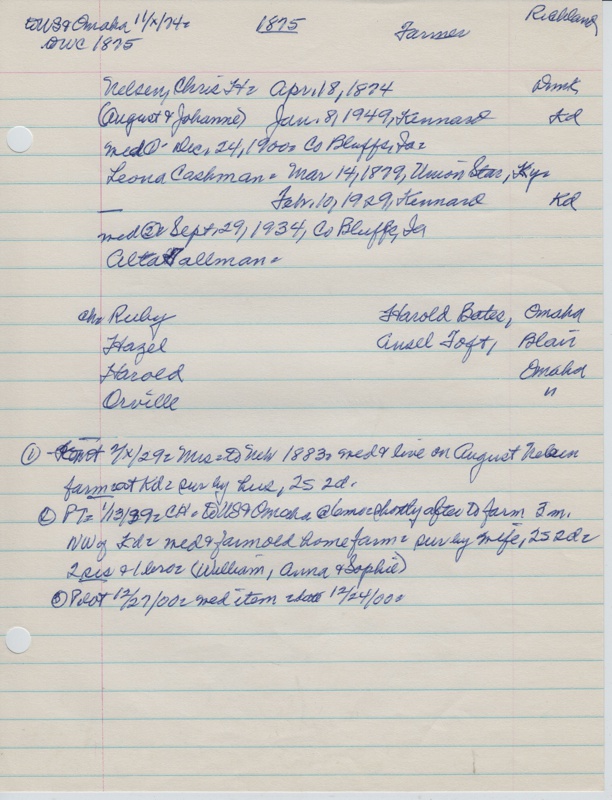 to US & Omaha 11/x/74= 1875 Farmer Richland
DWC 1875
Nelsen, Chris H= Apr. 18, 1874 Dnmk
(August & Johanne) Jan. 8, 1949, Kennard Kd
med ① Dec. 24, 1900= Co Bluffs, Ia=
Leona Cashman= Mar 14, 1879, Union Star, Ky=
Feb. 10, 1929, Kennard Kd
med ② Sept. 29, 1934, Co Bluffs, Ia
Alta Tallman=
ch= Ruby Harold Bates, Omaha
Hazel Ansel Toft, Blair
Harold Omaha
Orville "
① 2/x/29= Mrs= to Neb 1883= med & live on August Nelsen
farm at Kd= sur by hus, 2s 2d=
② PT= 1/13/39= CH= to US & Omaha shortly after to farm 3 m.
NW of Kd= med & farm old home farm= sur by wife, 2s 2d=
2 sis & 1 bro= (William, Anna & Sophie)
③ Pilot 12/27/00= med item 12/24/00=